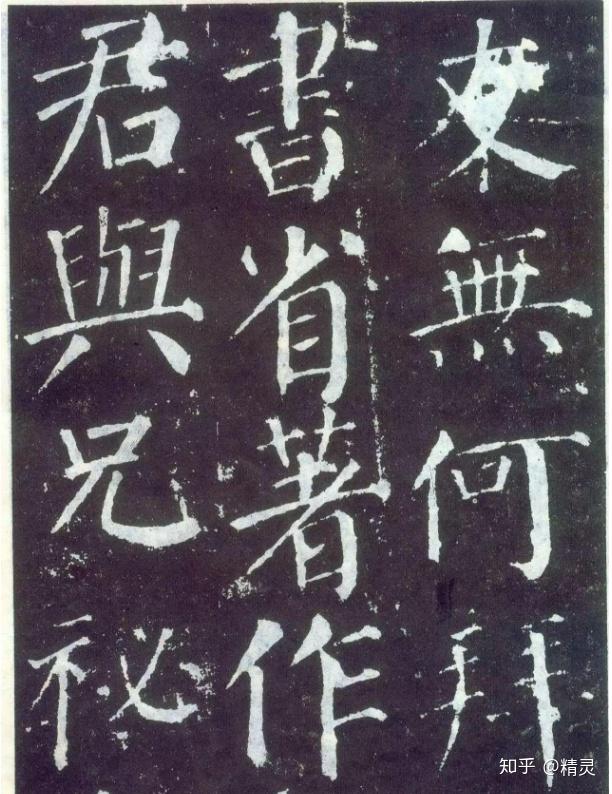 友無何拜
書省著作
君與兄祕
知乎 @精灵